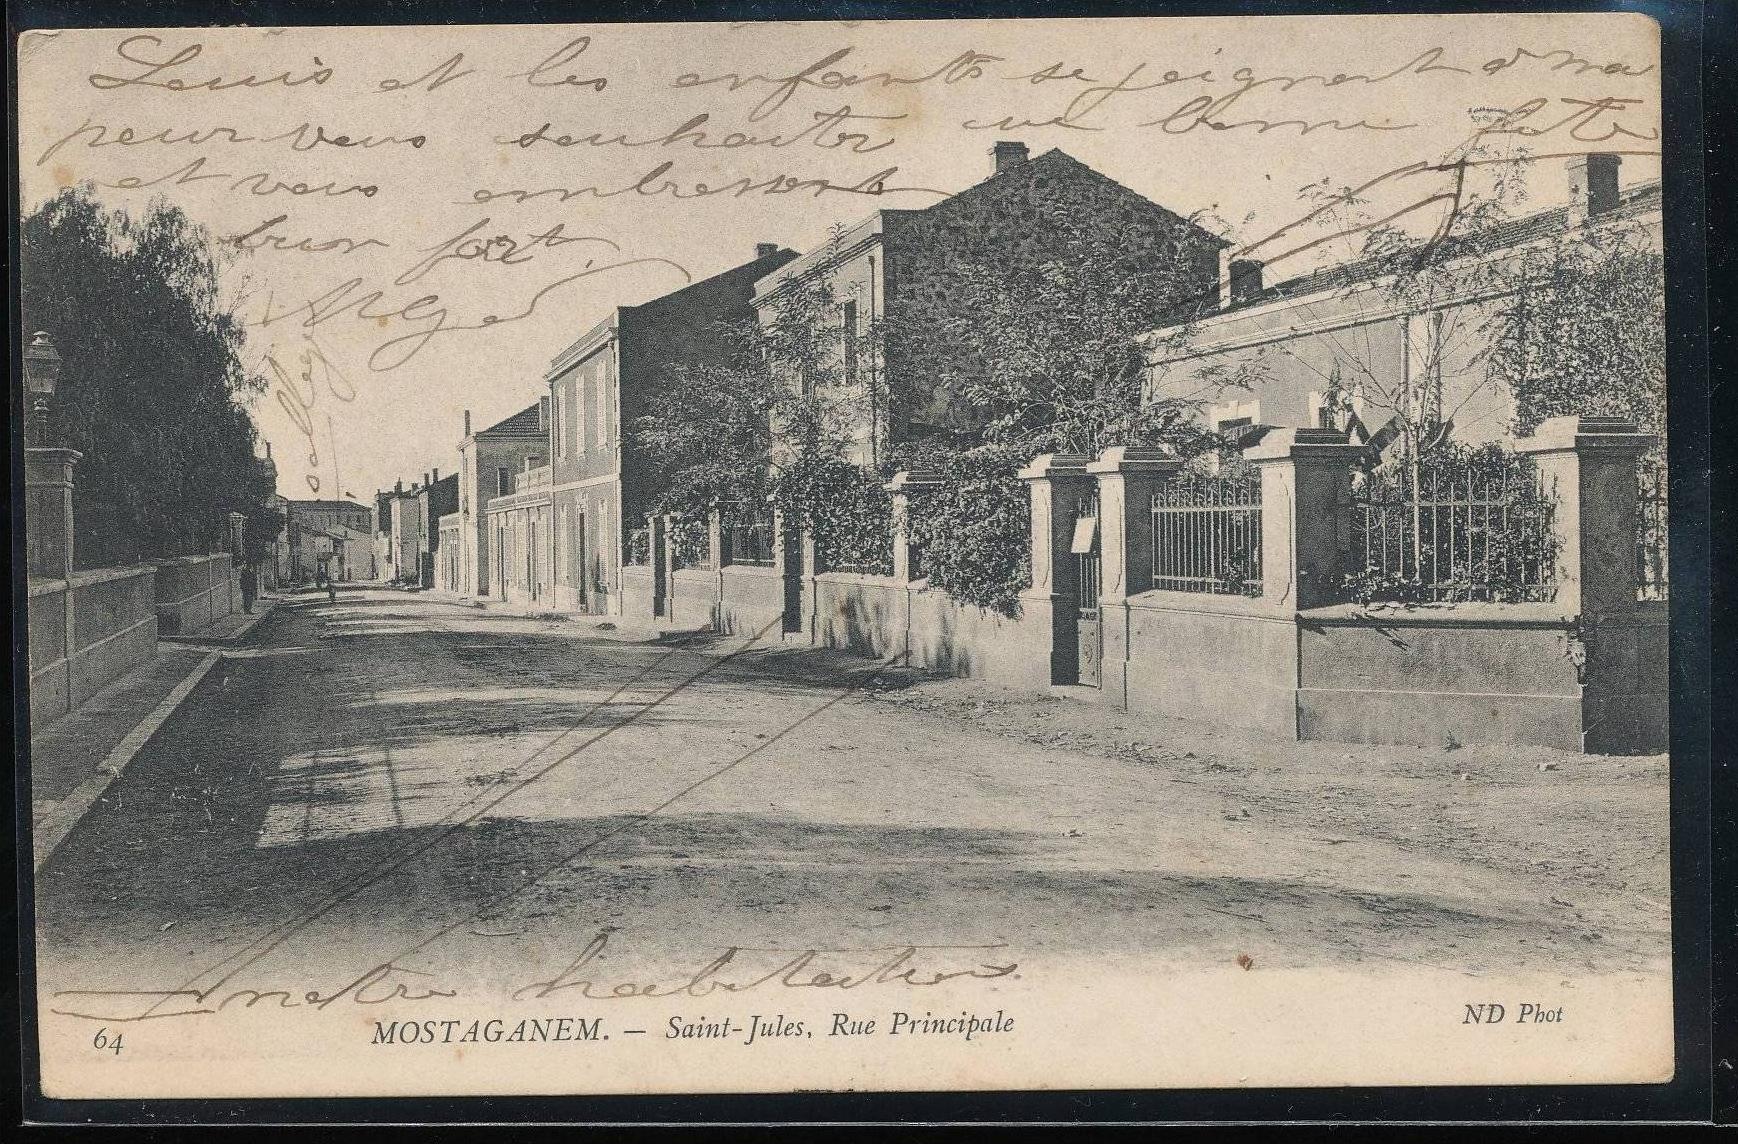 Louis et les enfants se joignent à ma
pour vous souhaiter une bonne fête
et vous embrassent
bien fort.
collège
notre habitation
64
MOSTAGANEM. — Saint-Jules, Rue Principale
ND Phot